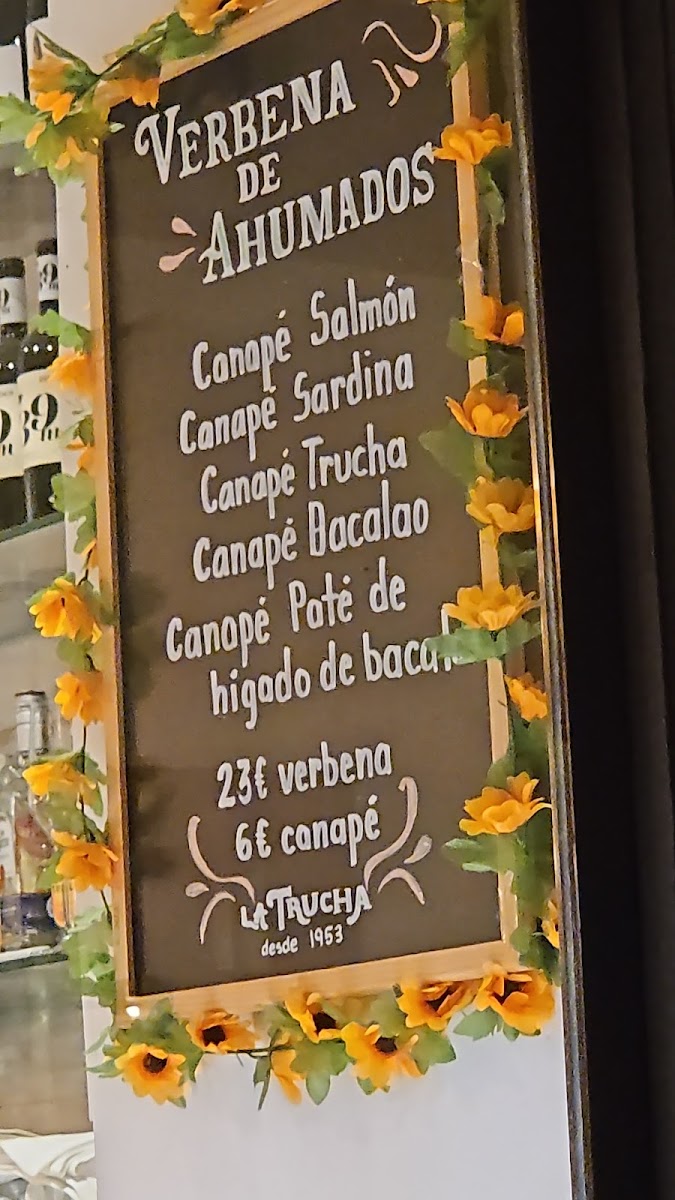 VERBENA
DE
AHUMADOS
Canapé Salmón
Canapé Sardina
Canapé Trucha
Canapé Bacalao
Canapé Paté de
higado de
23€ verbena
6€ canapé
LA TRUCHA
desde 1953
39
39